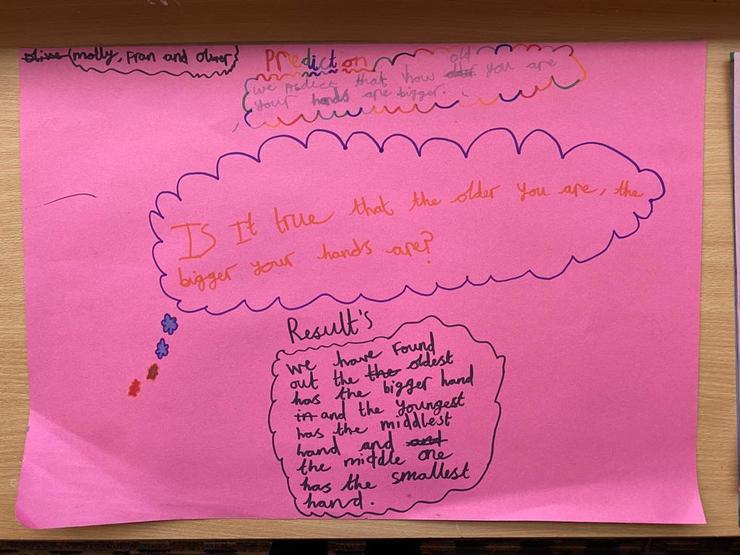 Olive (molly, Fran and Oliver)
Prediction
old
we Predict that how older you are
your hands are bigger.
Is It true that the older you are, the
bigger your hands are?
Result's
we have Found
out the the oldest
has the bigger hand
in and the youngest
has the middlest
hand and and
the middle one
has the smallest
hand.